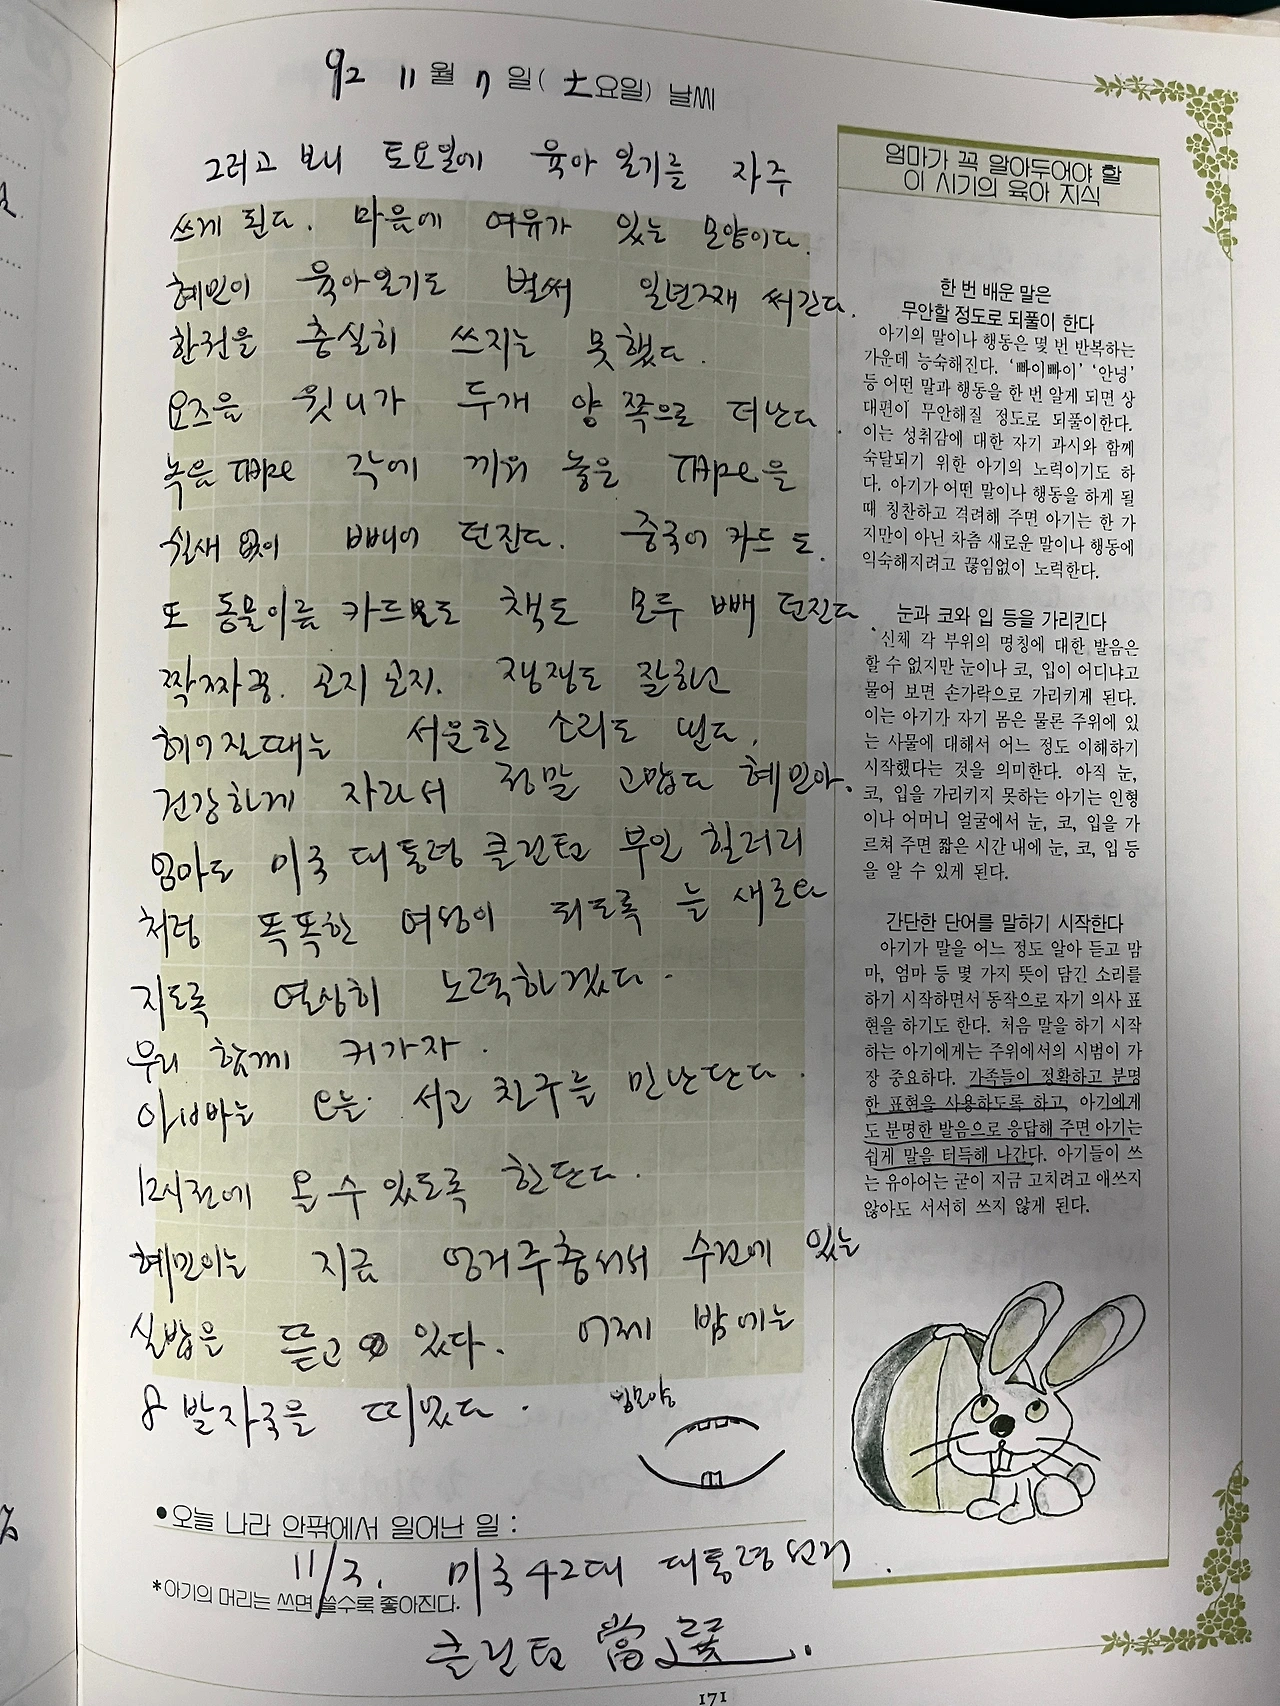 92 11월 7일(土요일) 날씨
그러고 보니 토요일에 육아 일기를 자주
쓰게 된다. 마음에 여유가 있는 모양이다.
혜민이 육아일기도 벌써 일년째 써간다.
한권을 충실히 쓰지는 못했다.
요즈음 윗니가 두개 양쪽으로 더난다.
녹음 TAPE 각에 끼워 놓은 TAPE을
쉴새 없이 빼내어 던진다. 중국어 카드도.
또 동물이름 카드도 책도 모두 빼 던진다.
짝짜꿍. 곤지곤지. 잼잼도 잘하고
헤어질때는 서운한 소리도 낸다.
건강하게 자라서 정말 고맙다 혜민아.
엄마도 미국 대통령 클린턴 부인 힐러리
처럼 똑똑한 여성이 되도록 늘 새로와
지도록 열심히 노력하겠다.
우리 함께 커가자.
아빠는 오늘 서고 친구를 만난단다.
12시전에 올 수 있도록 한단다.
혜민이는 지금 엉거주춤서서 수건에 있는
실밥을 뜯고 있다. 어제 밤에는
8 발자국을 띠었다.
입모양
● 오늘 나라 안팎에서 일어난 일 :
11/3. 미국 42대 대통령선거.
*아기의 머리는 쓰면 쓸수록 좋아진다.
클린턴 當選.
엄마가 꼭 알아두어야 할
이 시기의 육아 지식
한 번 배운 말은
무안할 정도로 되풀이 한다
아기의 말이나 행동은 몇 번 반복하는
가운데 능숙해진다. ‘빠이빠이’ ‘안녕’
등 어떤 말과 행동을 한 번 알게 되면 상
대편이 무안해질 정도로 되풀이한다.
이는 성취감에 대한 자기 과시와 함께
숙달되기 위한 아기의 노력이기도 하
다. 아기가 어떤 말이나 행동을 하게 될
때 칭찬하고 격려해 주면 아기는 한 가
지만이 아닌 차츰 새로운 말이나 행동에
익숙해지려고 끊임없이 노력한다.
눈과 코와 입 등을 가리킨다
신체 각 부위의 명칭에 대한 발음은
할 수 없지만 눈이나 코, 입이 어디냐고
물어 보면 손가락으로 가리키게 된다.
이는 아기가 자기 몸은 물론 주위에 있
는 사물에 대해서 어느 정도 이해하기
시작했다는 것을 의미한다. 아직 눈,
코, 입을 가리키지 못하는 아기는 인형
이나 어머니 얼굴에서 눈, 코, 입을 가
르쳐 주면 짧은 시간 내에 눈, 코, 입 등
을 알 수 있게 된다.
간단한 단어를 말하기 시작한다
아기가 말을 어느 정도 알아 듣고 맘
마, 엄마 등 몇 가지 뜻이 담긴 소리를
하기 시작하면서 동작으로 자기 의사 표
현을 하기도 한다. 처음 말을 하기 시작
하는 아기에게는 주위에서의 시범이 가
장 중요하다. 가족들이 정확하고 분명
한 표현을 사용하도록 하고, 아기에게
도 분명한 발음으로 응답해 주면 아기는
쉽게 말을 터득해 나간다. 아기들이 쓰
는 유아어는 굳이 지금 고치려고 애쓰지
않아도 서서히 쓰지 않게 된다.
171